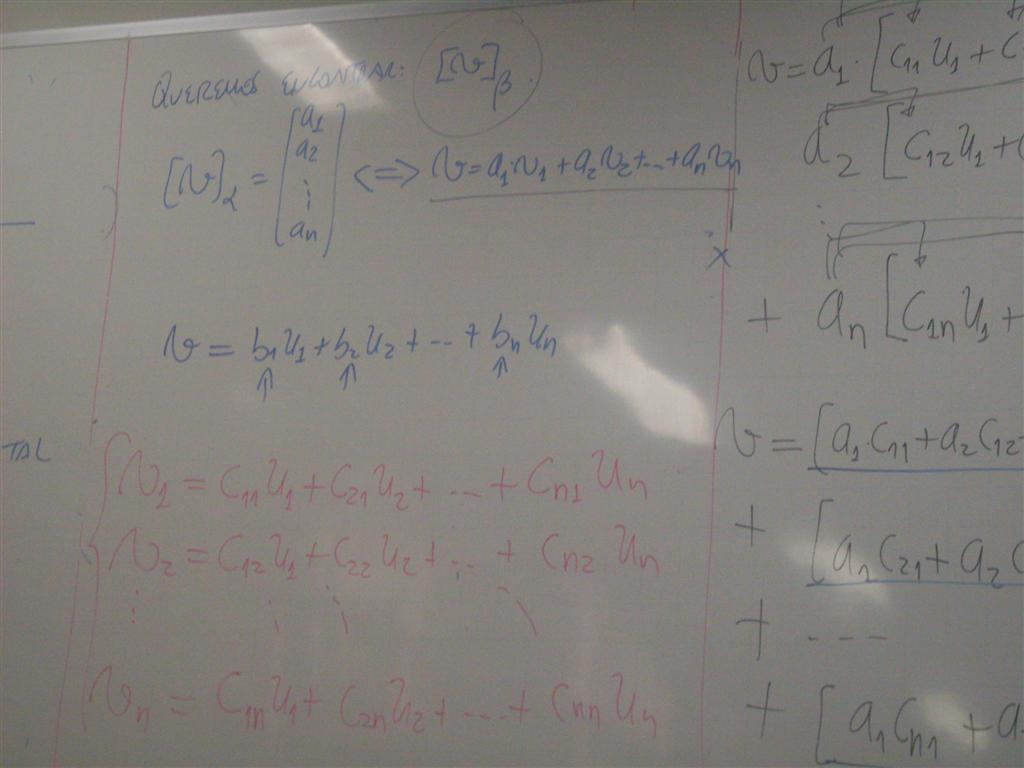 QUEREMOS ENCONTRAR: [v]β
[v]α = [a1 a2 ⋮ an] <=> v = a1·v1 + a2v2 + ... + anvn
v = b1u1 + b2u2 + ... + bnun
TAL
v1 = c11u1 + c21u2 + ... + cn1un
v2 = c12u1 + c22u2 + ... + cn2un
⋮
vn = c1nu1 + c2nu2 + ... + cnnun
x
v = a1·[c11u1 + c
a2[c12u1 +
⋮
+ an[c1nu1 +
v = [a1·c11 + a2c12
+ [a1c21 + a2c
+ ----
+ [a1cn1 + a